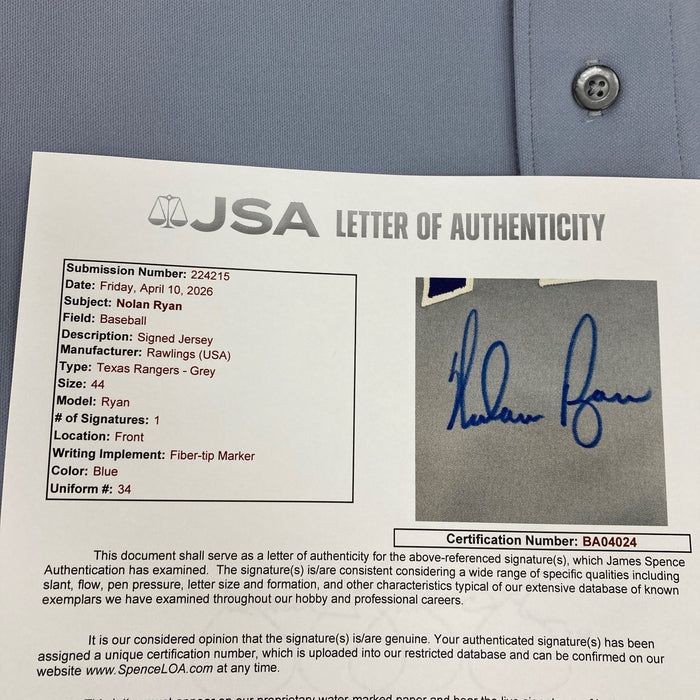 JSA LETTER OF AUTHENTICITY
Submission Number: 224215
Date: Friday, April 10, 2026
Subject: Nolan Ryan
Field: Baseball
Description: Signed Jersey
Manufacturer: Rawlings (USA)
Type: Texas Rangers - Grey
Size: 44
Model: Ryan
# of Signatures: 1
Location: Front
Writing Implement: Fiber-tip Marker
Color: Blue
Uniform #: 34
Nolan Ryan
Certification Number: BA04024
This document shall serve as a letter of authenticity for the above-referenced signature(s), which James Spence
Authentication has examined. The signature(s) is/are consistent considering a wide range of specific qualities including
slant, flow, pen pressure, letter size and formation, and other characteristics typical of our extensive database of known
exemplars we have examined throughout our hobby and professional careers.
It is our considered opinion that the signature(s) is/are genuine. Your authenticated signature(s) has been
assigned a unique certification number, which is uploaded into our restricted database and can be confirmed on our
website www.SpenceLOA.com at any time.